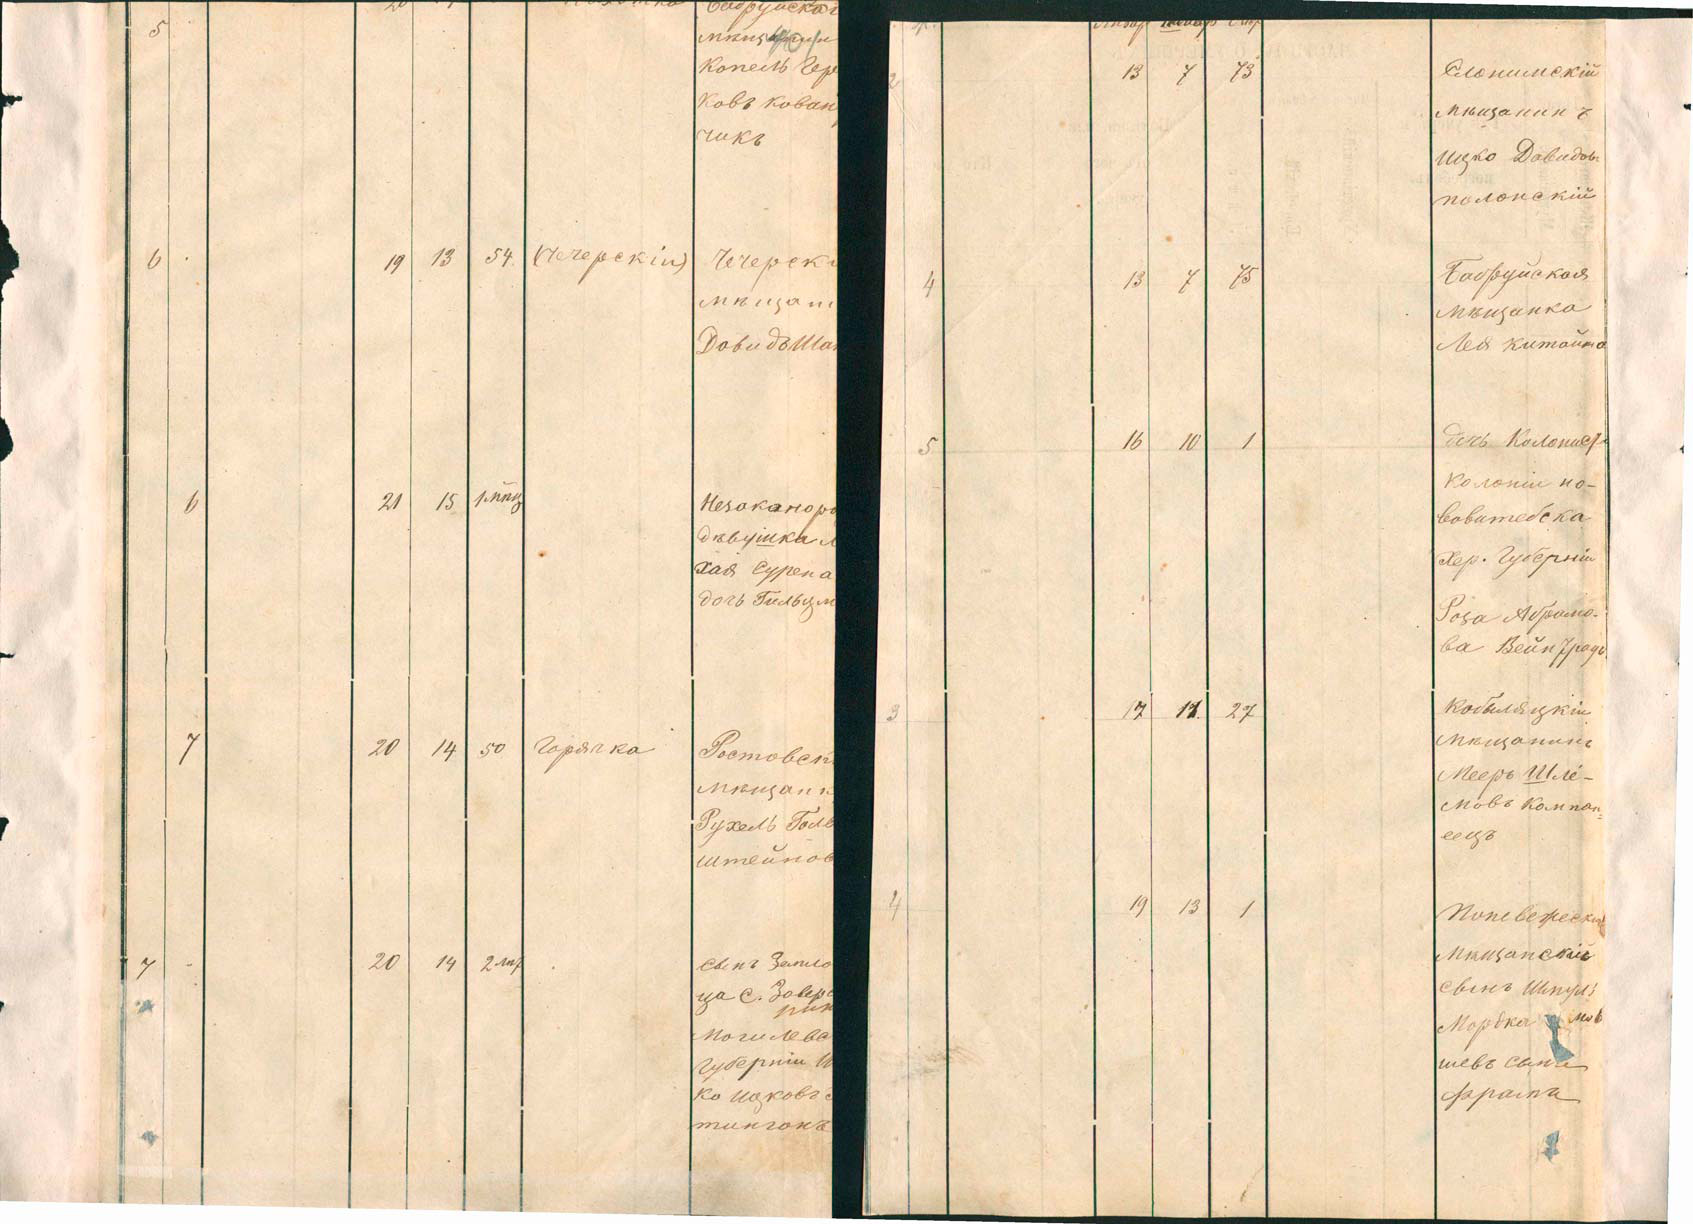 5
мѣщанин
Копель Гер
ковъ Кован
чикъ
6 19 13 54 (Чечерскій) Чечерскі
мѣщан
Довидъ Шап
6 21 15 1 мѣц Незаконоро
дѣвушка
Хая Сурена
дочь Гильцм
7 20 14 50 Горячка Ростовск
мѣщанк
Рухель Голь
штейнов
7 20 14 2 сынъ Земле
ца с.
Могилевс
Губерніи И
ко Ицковъ
тинтонъ
13 7 73 Слонимскій
мѣщанинъ
Ицко Давидов
полонскій
4 13 7 75 Бобруйская
мѣщанка
Лея Китайна
5 16 10 1 дочь Колонист
Колоніи но-
вовитебска
Хер. Губерніи
Роза Абрамо-
ва Вейнград
3 17 11 27 Кобыляцкій
Мѣщанинъ
Мееръ Шлё-
мовъ Компан-
еецъ
4 19 13 1 Поневежск
Мѣщанскій
сынъ Шмулъ
Мордка мов
шевъ сынъ